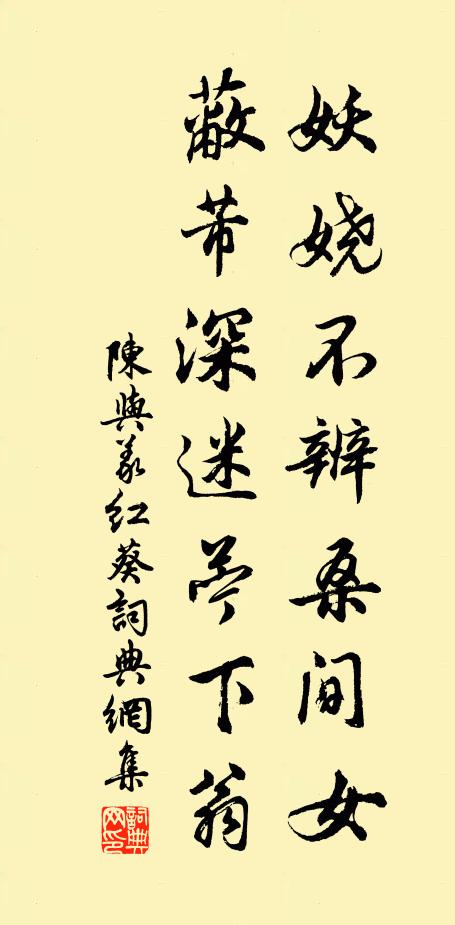 妖娆不辨桑間女
蔽芾深迷苧下翁
陳與義紅葵詞典網集
詞典
网印